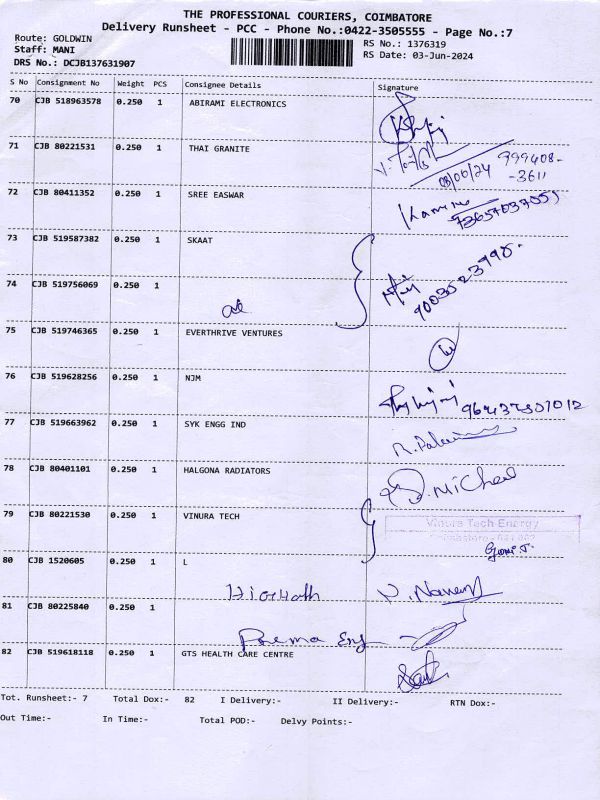 THE PROFESSIONAL COURIERS, COIMBATORE
Delivery Runsheet - PCC - Phone No.:0422-3505555 - Page No.:7
Route: GOLDWIN
Staff: MANI
DRS No.: DCJB137631907
RS No.: 1376319
RS Date: 03-Jun-2024
S No Consignment No Weight PCS Consignee Details Signature
70 CJB 518963578 0.250 1 ABIRAMI ELECTRONICS
71 CJB 80221531 0.250 1 THAI GRANITE
999408-
03/06/24 -3611
72 CJB 80411352 0.250 1 SREE EASWAR
73 CJB 519587382 0.250 1 SKAAT
74 CJB 519756069 0.250 1
9003523998.
75 CJB 519746365 0.250 1 EVERTHRIVE VENTURES
76 CJB 519628256 0.250 1 NJM
77 CJB 519663962 0.250 1 SYK ENGG IND
78 CJB 80401101 0.250 1 HALGONA RADIATORS
79 CJB 80221530 0.250 1 VINURA TECH
Vinura Tech Energy
80 CJB 1520605 0.250 1 L
81 CJB 80225840 0.250 1
82 CJB 519618118 0.250 1 GTS HEALTH CARE CENTRE
Tot. Runsheet:- 7 Total Dox:- 82 I Delivery:- II Delivery:- RTN Dox:-
Out Time:- In Time:- Total POD:- Delvy Points:-